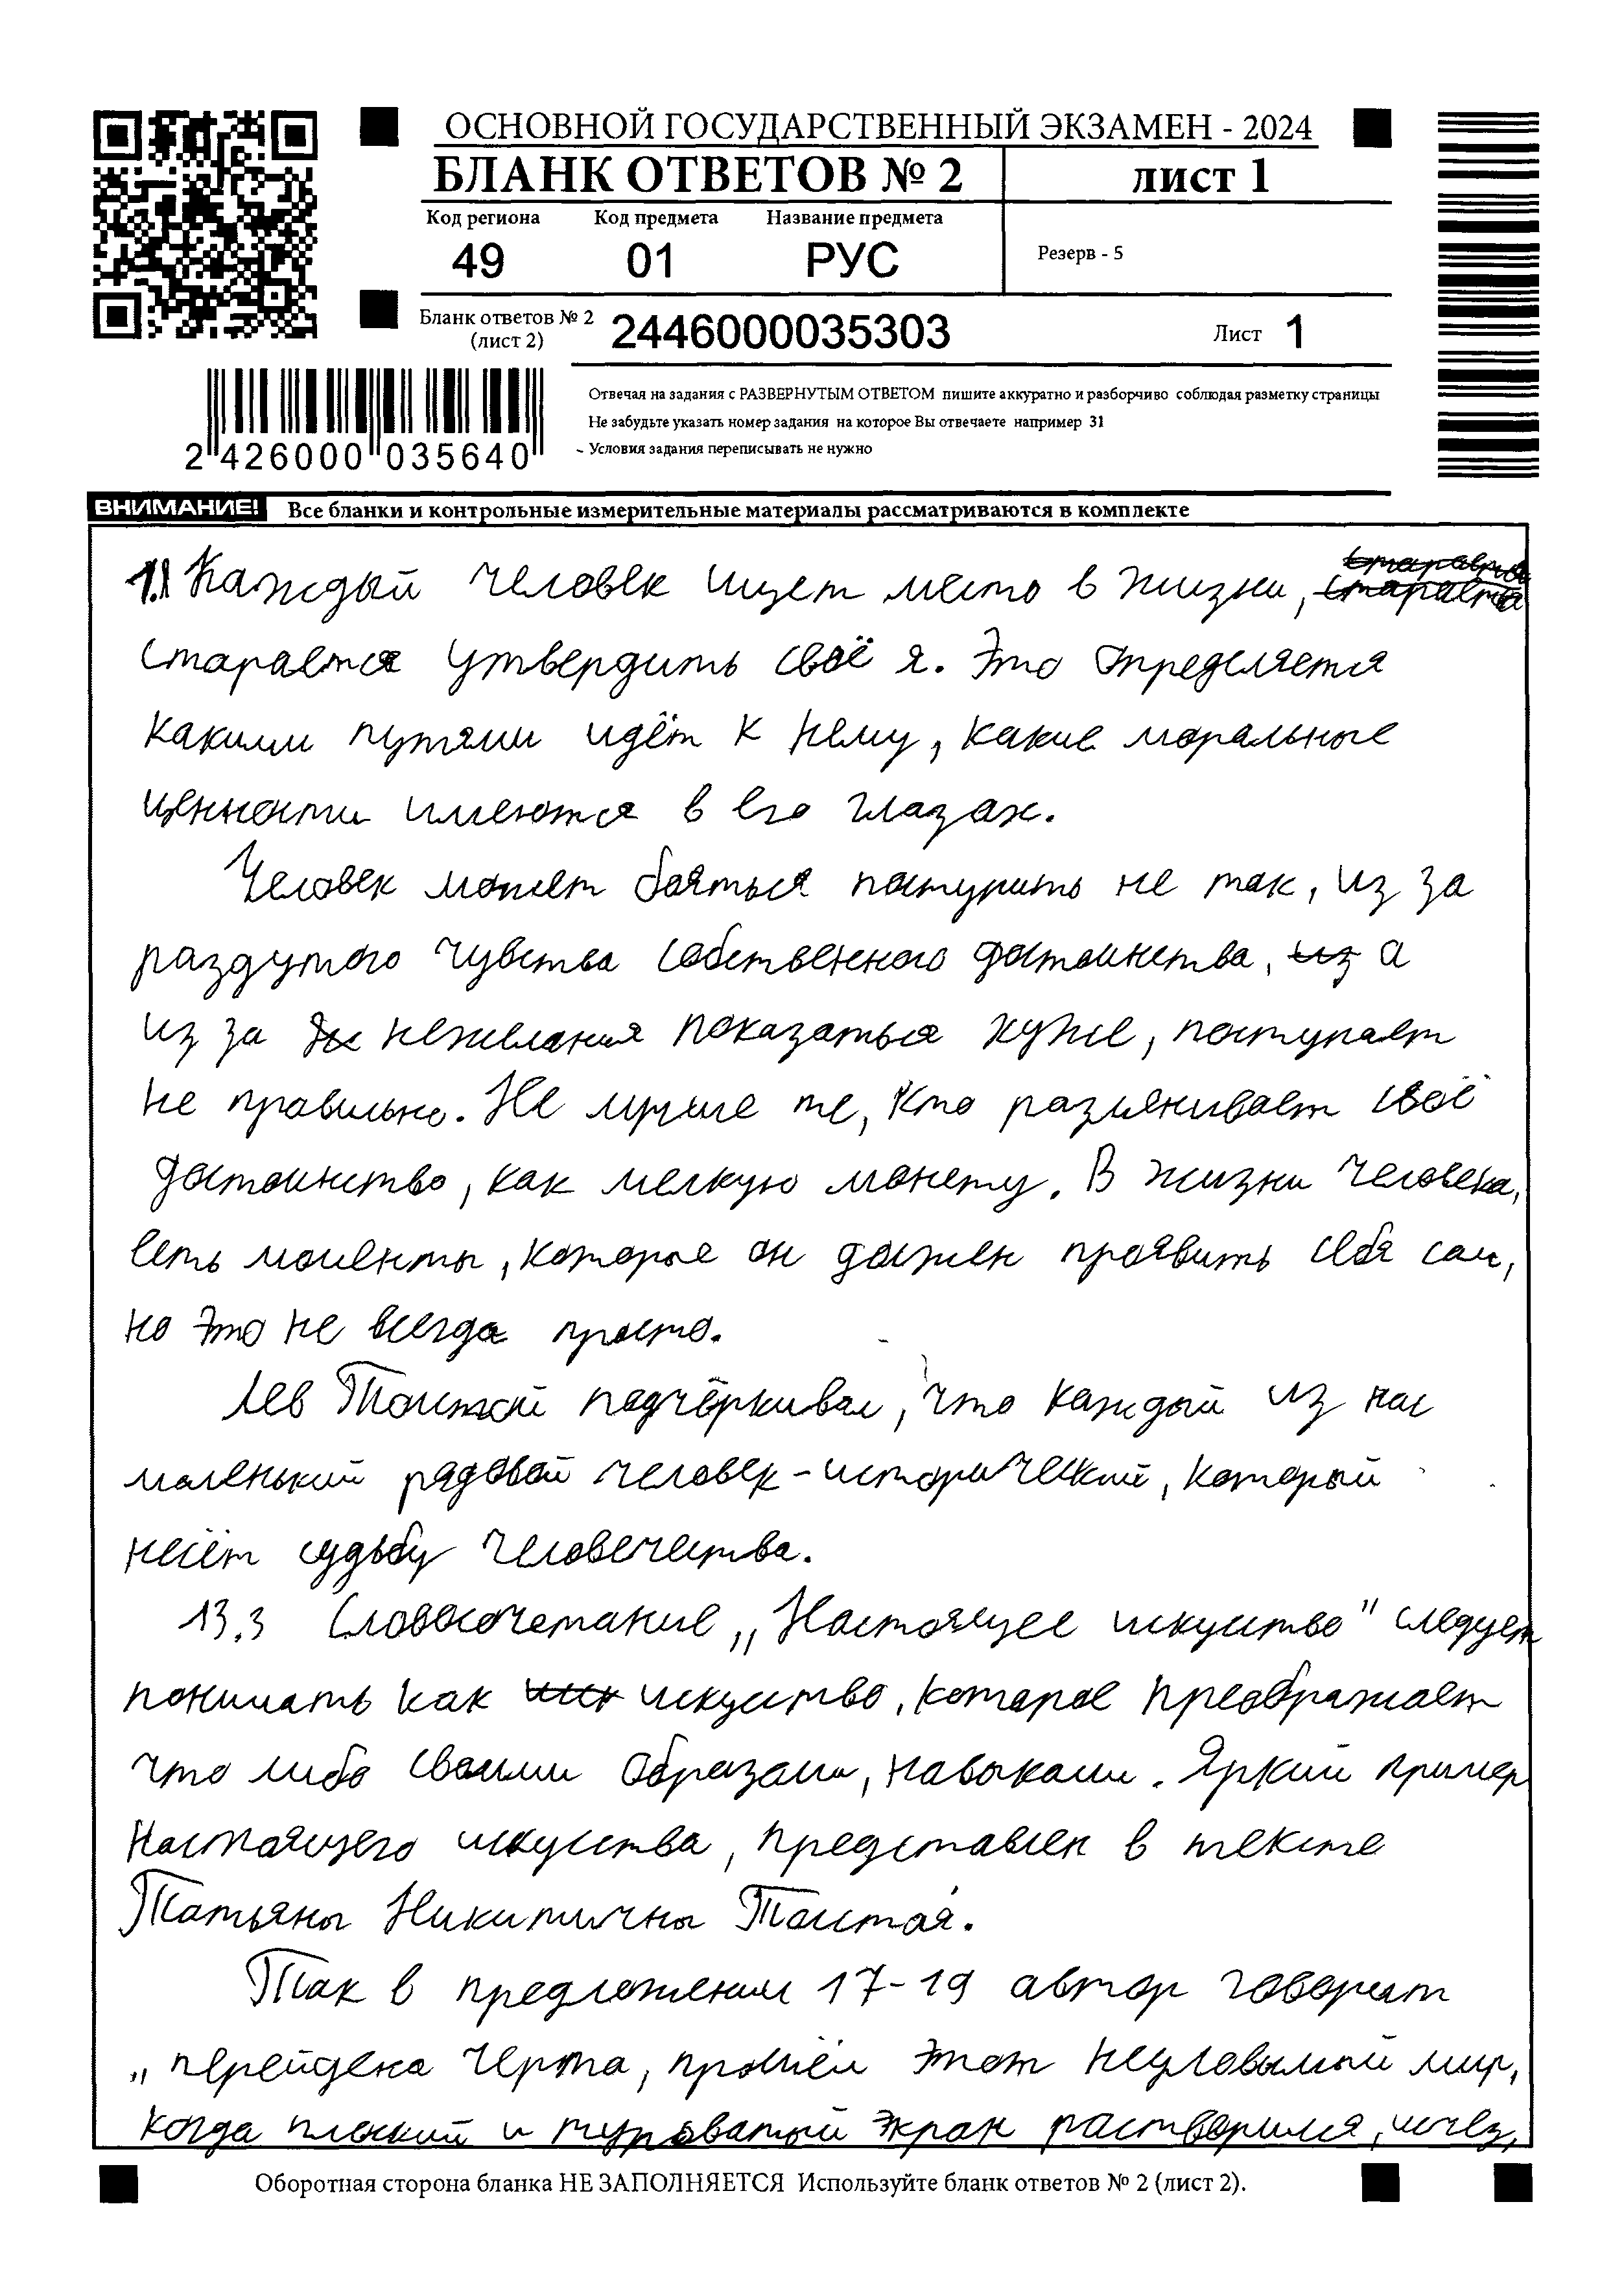 ОСНОВНОЙ ГОСУДАРСТВЕННЫЙ ЭКЗАМЕН - 2024
БЛАНК ОТВЕТОВ № 2 лист 1
Код региона Код предмета Название предмета
49 01 РУС Резерв - 5
Бланк ответов № 2 (лист 2) 2446000035303 Лист 1
Отвечая на задания с РАЗВЕРНУТЫМ ОТВЕТОМ пишите аккуратно и разборчиво соблюдая разметку страницы
Не забудьте указать номер задания на которое Вы отвечаете например 31
- Условия задания переписывать не нужно
2 426000 035640
ВНИМАНИЕ! Все бланки и контрольные измерительные материалы рассматриваются в комплекте
1.1 Каждый человек ищет место в жизни,
старается утвердить своё я. Это определяется
какими путями идёт к нему, какие моральные
ценности имеются в его глазах.
Человек может бояться поступить не так, из за
раздутого чувства собственного достоинства, а
из за нежелания показаться хуже, поступает
не правильно. Не лучше те, кто разменивает своё
достоинство, как мелкую монету. В жизни человека,
есть моменты, которые он должен проявить себя сам,
но это не всегда просто.
Лев Толстой подчёркивал, что каждый из нас
маленький рядовой человек-исторический, который
несёт судьбу человечества.
13.3 Словосочетание „Настоящее искуство" следует
понимать как искуство, которое преображает
что либо своими образами, навыками. Яркий пример
настоящего искуства, представлен в тексте
Татьяны Никитичны Толстая.
Так в предложении 17-19 автор говорит
„перейдена черта, прошёл этот неуловимый мир,
когда плоский и туповатый экран растворился, исчез,
Оборотная сторона бланка НЕ ЗАПОЛНЯЕТСЯ Используйте бланк ответов № 2 (лист 2).